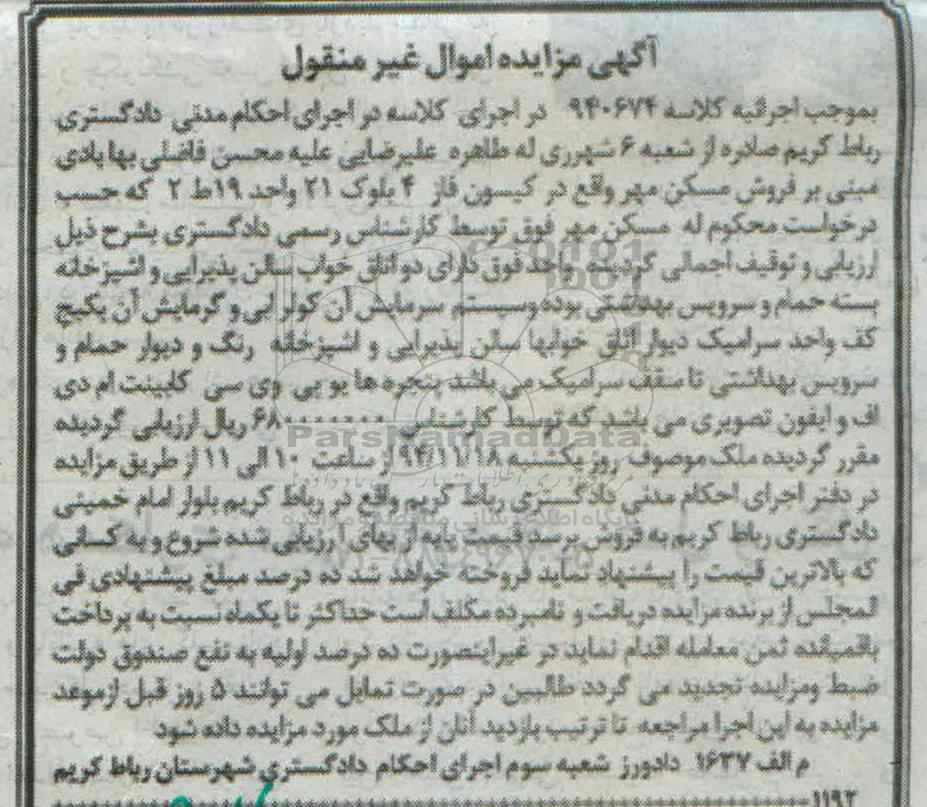 آگهی مزایده اموال غیر منقول
بموجب اجرائیه کلاسه ۹۴۰۶۷۴ در اجرای کلاسه در اجرای احکام مدنی دادگستری
رباط کریم صادره از شعبه ۶ شهرری له طاهره علیرضایی علیه محسن فاضلی بهابادی
مبنی بر فروش مسکن مهر واقع در کیسون فاز ۴ بلوک ۲۱ واحد ۱۹ط ۲ که حسب
درخواست محکوم له مسکن مهر فوق توسط کارشناس رسمی دادگستری بشرح ذیل
ارزیابی و توقیف اجمالی گردیده واحد فوق دارای دو اتاق خواب سالن پذیرایی و اشپزخانه
بسته حمام و سرویس بهداشتی بوده وسیستم سرمایش آن کولر ابی و گرمایش آن پکیج
کف واحد سرامیک دیوار اتاق خوابها سالن پذیرایی و اشپزخانه رنگ و دیوار حمام و
سرویس بهداشتی تا سقف سرامیک می باشد پنجره ها یو پی وی سی کابینت ام دی
اف و ایفون تصویری می باشد که توسط کارشناس ۶۸۰۰۰۰۰۰۰ ریال ارزیابی گردیده
مقرر گردیده ملک موصوف روز یکشنبه ۹۴/۱۱/۱۸ از ساعت ۱۰ الی ۱۱ از طریق مزایده
در دفتر اجرای احکام مدنی دادگستری رباط کریم واقع در رباط کریم بلوار امام خمینی
دادگستری رباط کریم به فروش برسد قیمت پایه از بهای ارزیابی شده شروع و به کسانی
که بالاترین قیمت را پیشنهاد نماید فروخته خواهد شد ده درصد مبلغ پیشنهادی فی
المجلس از برنده مزایده دریافت و نامبرده مکلف است حداکثر تا یکماه نسبت به پرداخت
باقمیانده ثمن معامله اقدام نماید در غیراینصورت ده درصد اولیه به نفع صندوق دولت
ضبط ومزایده تجدید می گردد طالبین در صورت تمایل می توانند ۵ روز قبل ازموعد
مزایده به این اجرا مراجعه تا ترتیب بازدید آنان از ملک مورد مزایده داده شود
م الف ۱۶۳۷ دادورز شعبه سوم اجرای احکام دادگستری شهرستان رباط کریم
۱۱۹۲
ParsNamadData
پایگاه اطلاع رسانی مناقصه و مزایده